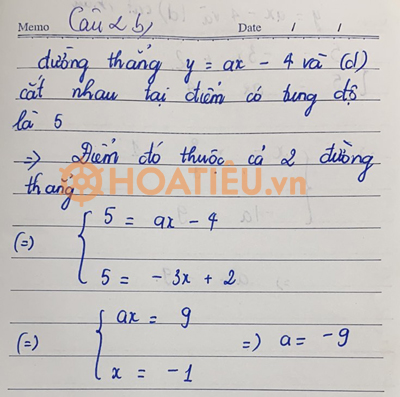 Câu 2 b,
Memo Date / /
đường thẳng y = ax - 4 và (d)
cắt nhau tại điểm có tung độ
là 5
=> Điểm đó thuộc cả 2 đường
thẳng
HOATIÊU.vn
(=) { 5 = ax - 4
5 = -3x + 2
(=) { ax = 9 =) a = -9
x = -1